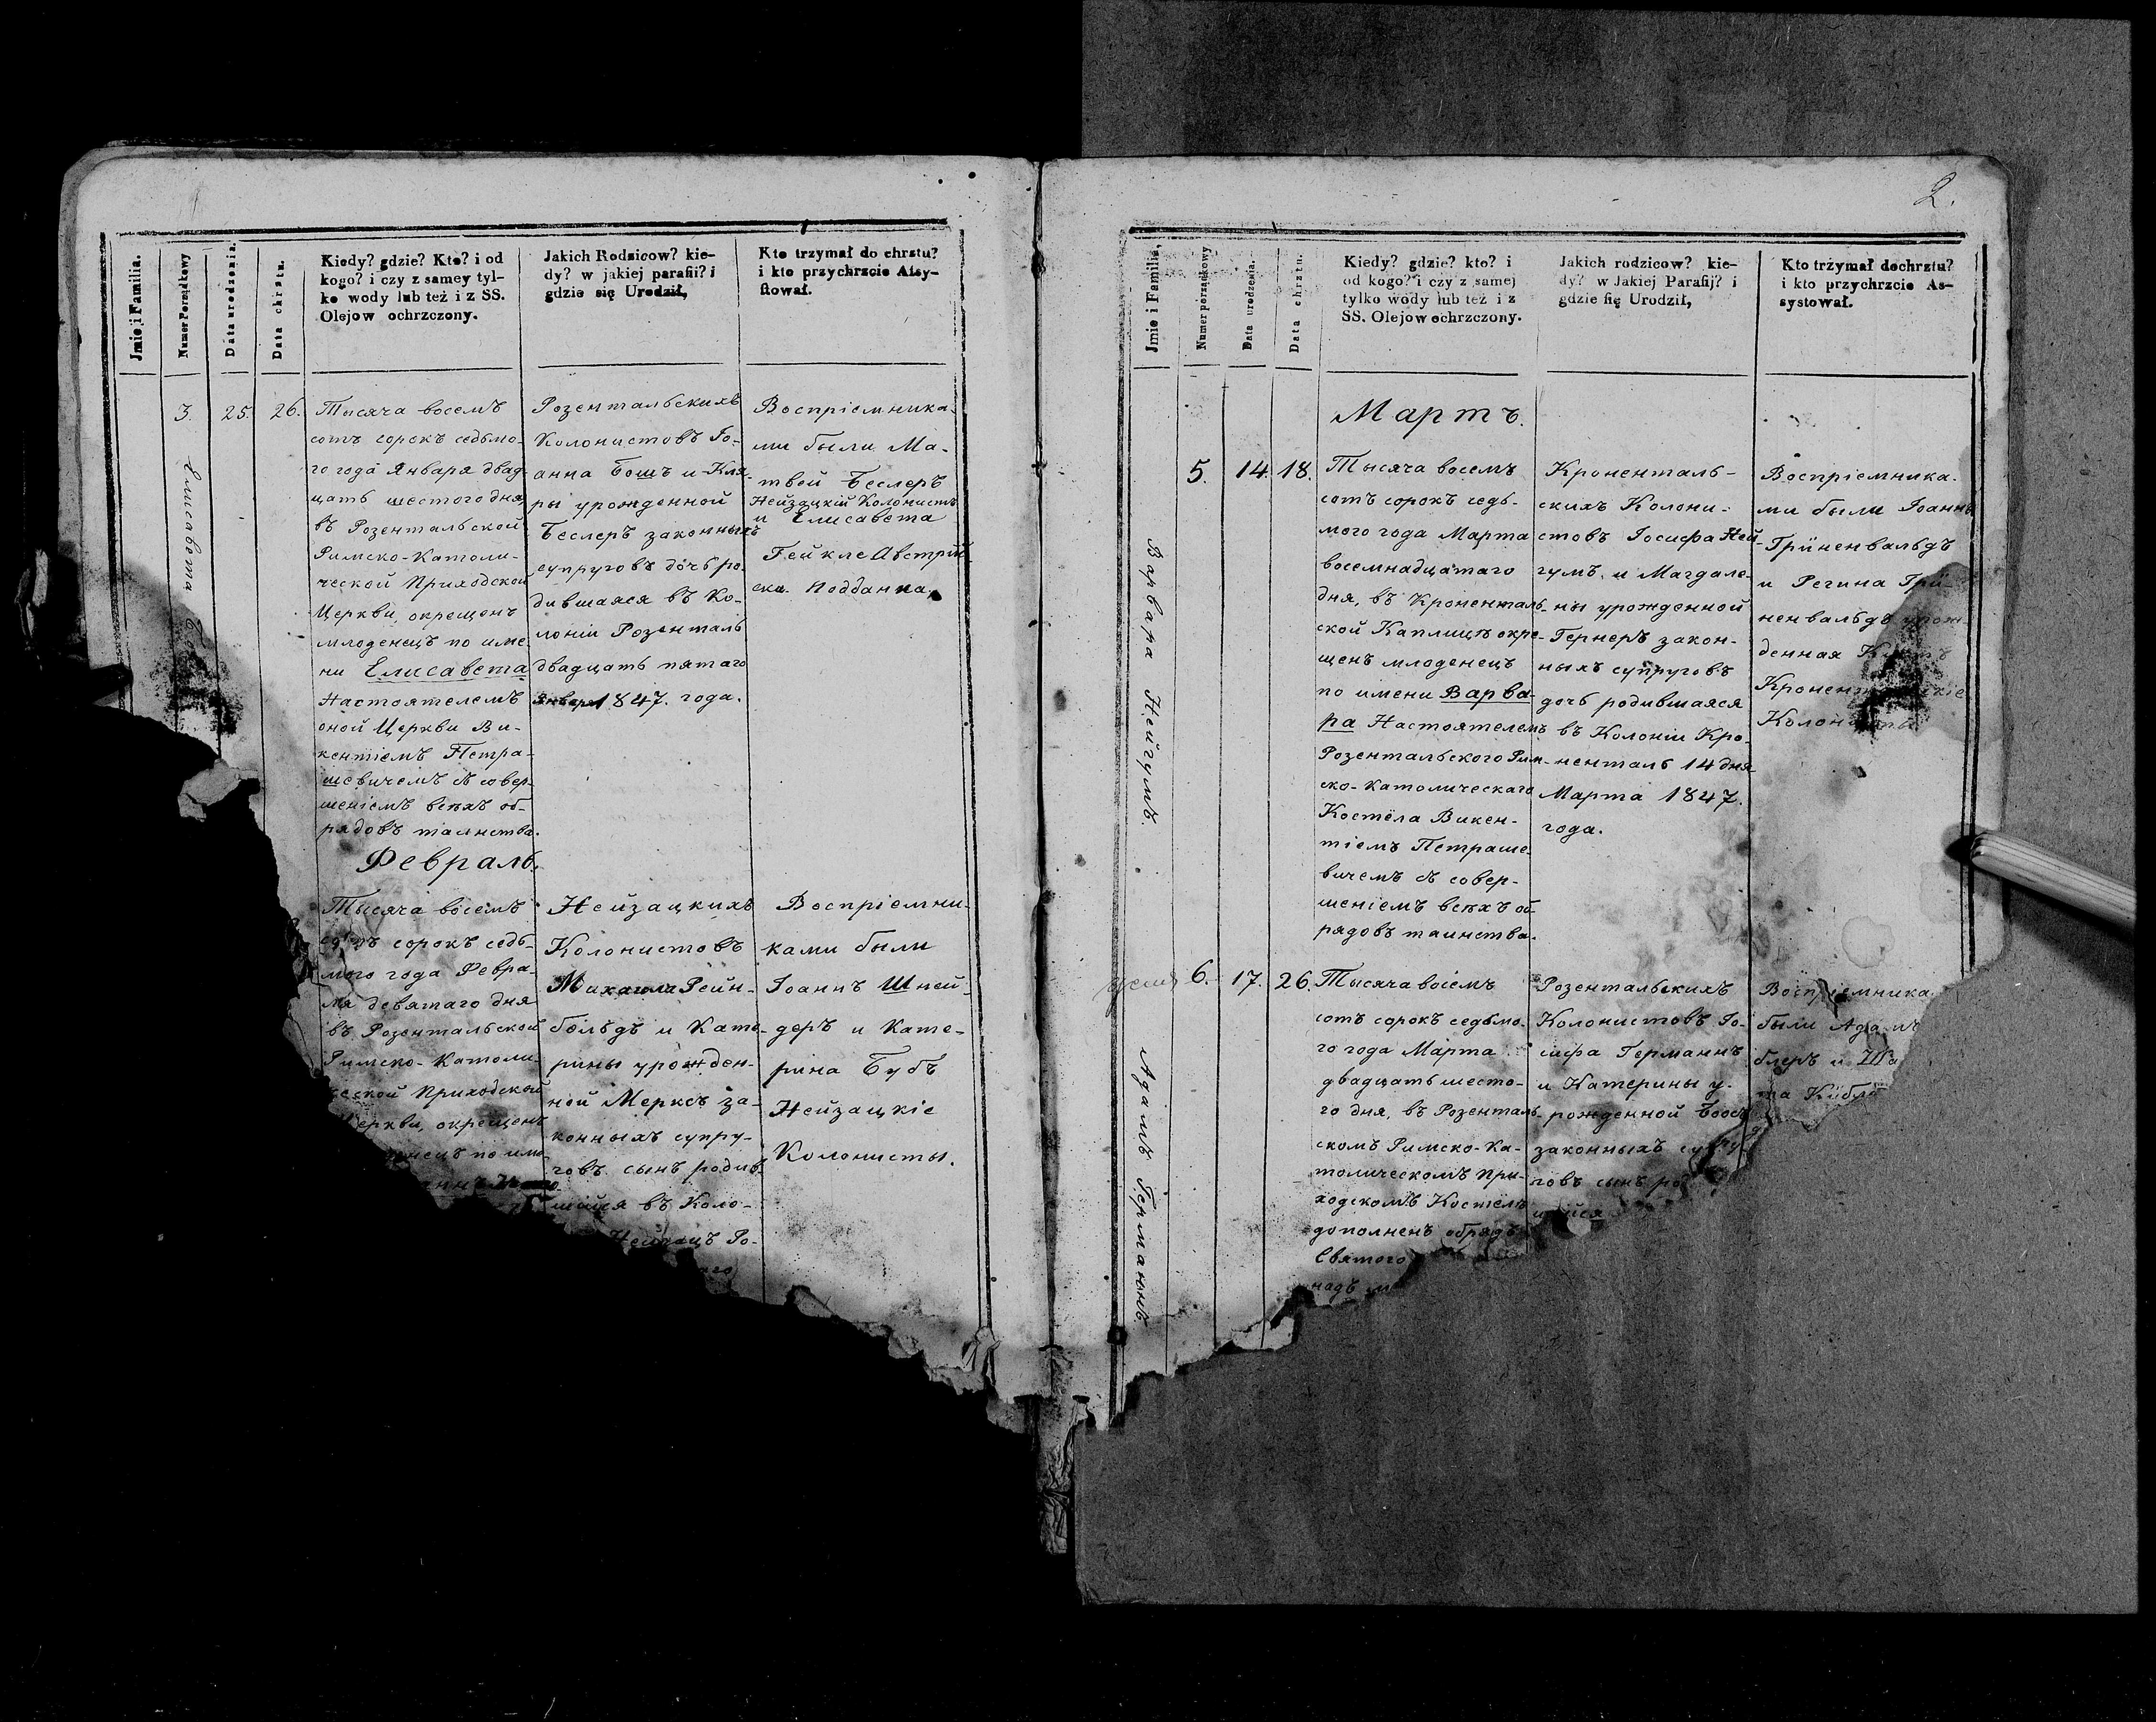 Jmie i Familia.
Numer Porządkowy
Data urodzenia.
Data chrztu.
Kiedy? gdzie? Kto? i od
kogo? i czy z samey tyl-
ko wody lub też i z SS.
Olejow ochrzczony.
Jakich Rodzicow? kie-
dy? w jakiej parafii? i
gdzie się Urodził,
Kto trzymał do chrztu?
i kto przychrzcie Assy-
stował.
Елисавета
3.
25.
26.
Тысяча восемъ
сотъ сорокъ седьмо-
го года Января двад-
цать шестого дня
въ Розентальской
Римско-Католи-
ческой Приходской
Церкви, окрещенъ
младенецъ по име-
ни Елисавета
Настоятелемъ
оной Церкви Ви-
кентіемъ Петра-
шевичемъ съ совер-
шеніемъ всѣхъ об-
рядовъ таинства.
Розентальскихъ
Колонистовъ Іо-
анна Бошъ и Кла-
ры урожденной
Беслеръ законныхъ
супруговъ дочь ро-
дившаяся въ Ко-
лоніи Розенталь
двадцать пятаго
Января 1847. года.
Воспріемника-
ми были Ма-
твей Беслеръ
Нейзацкій Колонистъ
и Елисавета
Гейкле Австрій-
ска. Подданна.
Февраль.
Тысяча восемъ
сотъ сорокъ седь-
мого года Февра-
ля девятаго дня
въ Розентальской
Римско-Католи-
ческой Приходской
Церкви, окрещенъ
по име-
Нейзацкихъ
Колонистовъ
Михаила Рейн-
больдъ и Кате-
рины урожден-
ной Меркеъ за-
конныхъ супру-
говъ сынъ родив-
шійся въ Коло-
Нейзацъ Ро-
Воспріемни-
ками были
Іоаннъ Шней-
деръ и Кате-
рина Бубъ
Нейзацкіе
Колонисты.
2.
Jmie i Familia,
Numer porządkowy
Data urodzenia.
Data chrztu.
Kiedy? gdzie? kto? i
od kogo? i czy z samej
tylko wody lub też i z
SS. Olejow ochrzczony.
Jakich rodzicow? kie-
dy? w Jakiej Parafij? i
gdzie się Urodził,
Kto trzymał dochrztu?
i kto przychrzcie As-
systował.
Мартъ.
Варвара Нейгумъ.
5.
14.
18.
Тысяча восемъ
сотъ сорокъ седь-
мого года Марта
восемнадцатаго
дня, въ Кроненталь-
ской Каплицѣ окре-
щенъ младенецъ
по имени Варва-
ра Настоятелемъ
Розентальского Рим-
ско-Католическаго
Костёла Викен-
тіемъ Петраше-
вичемъ съ совер-
шеніемъ всѣхъ об-
рядовъ таинства.
Кроненталь-
скихъ Колони-
стовъ Іосифа Ней-
гумъ и Магдале-
ны урожденной
Гернеръ закон-
ныхъ супруговъ
дочь родившаяся
въ Колоніи Кро-
ненталь 14 дня
Марта 1847.
года.
Воспріемника-
ми были Іоаннъ
Грüненвальдъ
и Регина Грü-
ненвальдъ урож-
денная
Колонисты
Адамъ Германнъ.
6.
17.
26.
Тысяча восемъ
сотъ сорокъ седьмо-
го года Марта
двадцать шесто-
го дня, въ Розенталь-
скомъ Римско-Ка-
толическомъ При-
ходскомъ Костёлѣ
дополненъ обрядъ
Святого
надъ
Розентальскихъ
Колонистовъ Іо-
сифа Германнъ
и Катерины у-
рожденной Боосъ
законныхъ супру-
говъ сынъ ро
Воспріемника
были Адамъ
блеръ и Ма
та Кüбле